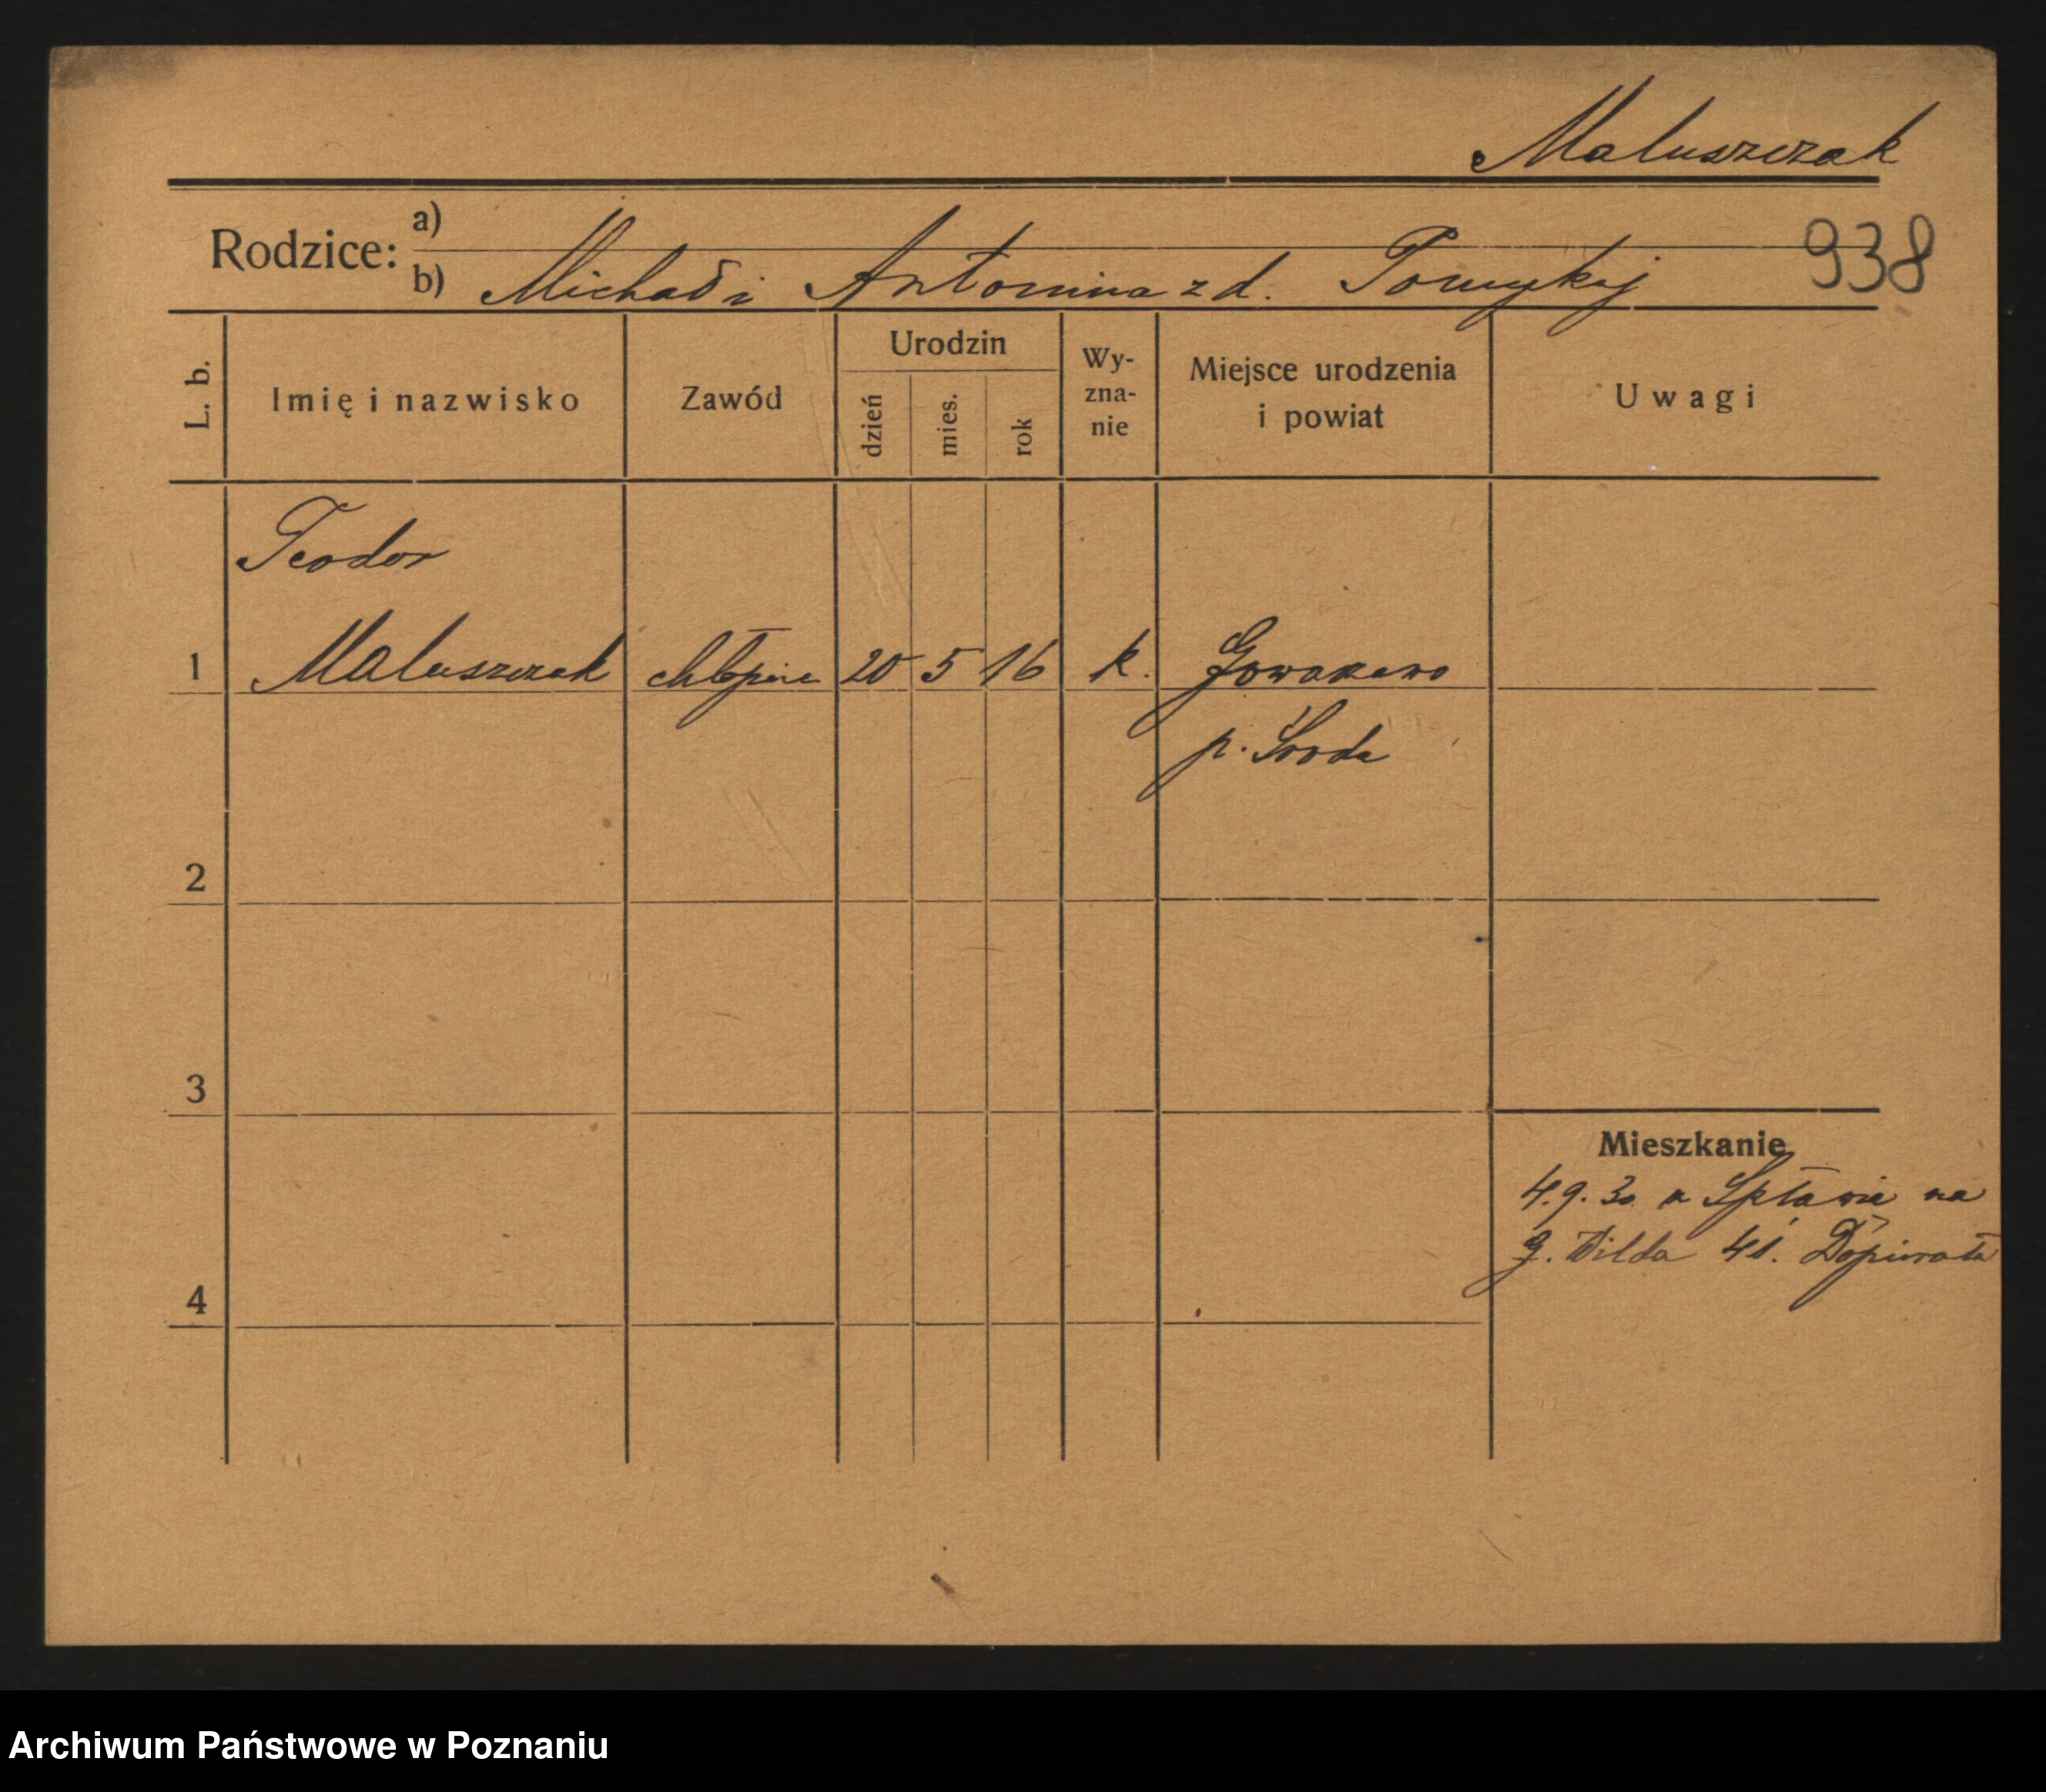 Maluszczak
Rodzice: a)
b) Michał i Antonina z d. Pomykaj
938
L. b.
Imię i nazwisko
Zawód
Urodzin
dzień
mies.
rok
Wy-
zna-
nie
Miejsce urodzenia
i powiat
Uwagi
Teodor
1 Maluszczak 20 5 16 k.
p. Środa
2
3
Mieszkanie
4.9.30 Spławie na
g. Wilda 41.
4
Archiwum Państwowe w Poznaniu